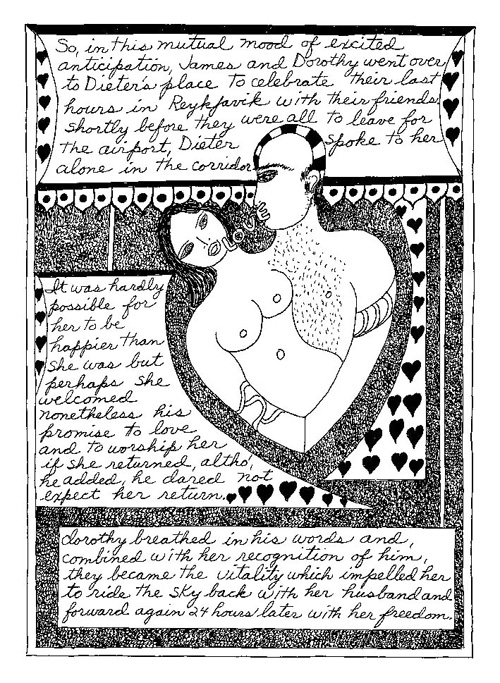 So, in this mutual mood of excited
anticipation, James and Dorothy went over
to Dieter's place to celebrate their last
hours in Reykjavik with their friends.
Shortly before they were all to leave for
the airport, Dieter spoke to her
alone in the corridor
LOVE
It was hardly
possible for
her to be
happier than
she was but
perhaps she
welcomed
nonetheless his
promise to love
and to worship her
if she returned, altho',
he added, he dared not
expect her return.
Dorothy breathed in his words and,
combined with her recognition of him,
they became the vitality which impelled her
to ride the sky back with her husband and
forward again 24 hours later with her freedom.